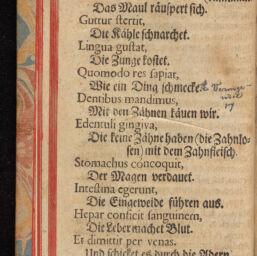 Das Maul räuspert sich.
Guttur stertit,
Die Kähle schnarchet.
Lingua gustat,
Die Zunge kostet.
Quomodo res sapiat,
Wie ein Ding schmecket.
Dentibus mandimus,
Mit den Zähnen käuen wir.
Edentuli gingiva,
Die keine Zähne haben (die Zahnlo-
sen) mit dem Zahnfleisch.
Stomachus concoquit,
Der Magen verdauet.
Intestina egerunt,
Die Eingeweide führen aus.
Hepar conficit sanguinem,
Die Leber machet Blut.
Et dimittit per venas.
Und schicket es durch die Adern